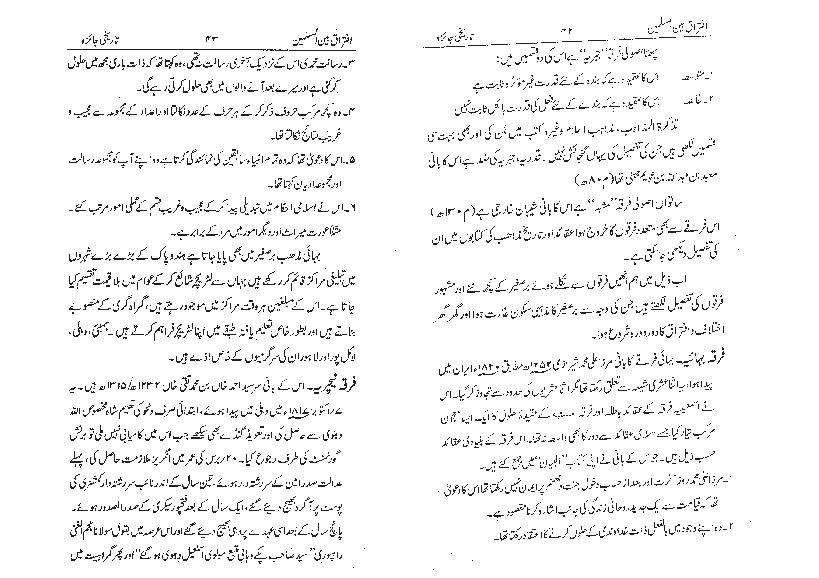 افتراق بین المسلمین ۴۲ تاریخی جائزہ
چھٹا اصولی فرقہ ”جبریہ“ ہے اس کی دو قسمیں ہیں:
اس کا عقیدہ ہے کہ بندہ کے لئے قدرت غیر مؤثرہ ثابت ہے
اس کا عقیدہ ہے کہ بندے کے لئے فعل کی قدرت بالکل ثابت نہیں
تذکرۃ المذاہب، مذاہب اسلام وغیرہ کتب میں ان کی اور بھی بہت سی
قسمیں لکھی ہیں جن کی تفصیل کی یہاں گنجائش نہیں۔ قدریہ، جبریہ کی ضد ہے اس کا بانی
معبد بن جہنی تھا (م ۸۰ھ)
ساتواں اصولی فرقہ ”مشبہ“ ہے اس کا بانی شیبان خارجی ہے (م ۱۳۰ھ)
اس فرقے سے بھی متعدد فرقوں کا خروج ہوا عقائد اور تاریخ مذاہب کی کتابوں میں ان
کی تفصیل دیکھی جا سکتی ہے۔
اب ذیل میں ہم انھیں فرقوں سے نکلے ہوئے برصغیر کے کچھ نئے اور مشہور
فرقوں کی تفصیل لکھتے ہیں جن کی وجہ سے برصغیر کا مذہبی سکون غارت ہوا اور گھر گھر
اختلاف و افتراق کا دور دورہ شروع ہوا:
فرقہ بہائیہ۔ بہائی فرقے کا بانی مرزا علی محمد شیرازی ۱۲۵۲ھ مطابق ۱۸۲۰ء ایران میں
پیدا ہوا، یہ اثنا عشری شیعہ سے تعلق رکھتا تھا مگر اثنا عشریوں کی حدود سے تجاوز کر گیا۔ اس
نے اسمعیلیہ فرقہ کے عقائد باطلہ اور فرقہ کے عقیدۂ حلول کا ایک ایسا معجون
مرکب تیار کیا جسے اسلامی عقائد سے دور کا بھی واسطہ نہ تھا۔ اس فرقہ کے بنیادی عقائد
حسب ذیل ہیں۔ جو اس کے بانی نے اپنی کتاب ”البیان“ میں جمع کئے ہیں۔
۱۔ مرزا علی محمد روز آخرت اور بعد از حساب دخول جنت و جہنم پر ایمان نہیں رکھتا تھا اس کا دعویٰ
تھا کہ قیامت سے ایک جدید روحانی زندگی کی جانب اشارہ کرنا مقصود ہے۔
۲۔ وہ اپنے وجود میں بالفعل ذات خداوندی کے حلول کرنے کا اعتقاد رکھتا تھا۔
افتراق بین المسلمین ۴۳ تاریخی جائزہ
۳۔ رسالت محمدی اس کے نزدیک آخری رسالت نہ تھی، وہ کہتا تھا کہ ذات باری مجھ میں حلول
کر گئی ہے اور میرے بعد آنے والوں میں بھی حلول کرتی رہے گی۔
۴۔ وہ کچھ مرکب حروف ذکر کر کے ہر حرف کے عدد نکالتا اور اعداد کے مجموعہ سے عجیب و
غریب نتائج نکالتا تھا۔
۵۔ اس کا دعویٰ تھا کہ وہ تمام انبیاء سابقین کی نمائندگی کرتا ہے وہ اپنے آپ کو مجموعہ رسالت
اور مجموعہ ادیان کہتا تھا۔
۶۔ اس نے اسلامی احکام میں تبدیلی پیدا کر کے عجیب و غریب قسم کے عملی امور مرتب کئے۔
مثلاً عورت میراث اور دیگر امور میں مرد کے برابر ہے۔
بہائی مذہب برصغیر میں بھی پایا جاتا ہے ہند و پاک کے بڑے بڑے شہروں
میں تبلیغی مراکز قائم کر رکھے ہیں جہاں سے لٹریچر شائع کر کے عوام میں بلا قیمت تقسیم کیا
جاتا ہے۔ اس کے مبلغین ہر وقت مراکز میں موجود رہتے ہیں، گمراہ گری کے منصوبے
بناتے ہیں اور بطور خاص تعلیم یافتہ طبقے میں اپنا لٹریچر فراہم کرتے ہیں۔ بمبئی، دہلی،
لائل پور اور لاہور ان کی سرگرمیوں کے خاص اڈے ہیں۔
فرقہ نیچریہ۔ اس کے بانی سر سید احمد خاں بن محمد تقی خاں ۱۲۳۲ھ/۱۳۱۵ھ ہیں۔ یہ
۷/ اکتوبر ۱۸۱۷ء میں دہلی میں پیدا ہوئے، ابتدائی صرف و نحو کی تعلیم شاہ مخصوص اللہ
دہلوی سے حاصل کی اور تعویذ گنڈے بھی سیکھے جب اس میں کامیابی نہیں ملی تو برٹش
گورنمنٹ کی طرف رجوع کیا۔ ۲۰ برس کی عمر میں انگریز ملازمت حاصل کی، پہلے
عدالت صدر امین کے سررشتہ دار ہوئے۔ تین سال کے اندر نائب سررشتہ دار کمشنری کی
پوسٹ پر آگرہ بھیج دیئے گئے، ایک سال کے بعد فتحپور سیکری کے صدر الصدور ہوئے۔
پانچ سال کے بعد اسی عہدے پر دہلی بھیج دیئے گئے اور اس عرصہ میں بقول مولانا نجم الغنی
رامپوری ”سید صاحب پکے وہابی متبع مولوی اسمٰعیل دہلوی ہو گئے“ اور پھر گمراہیت میں